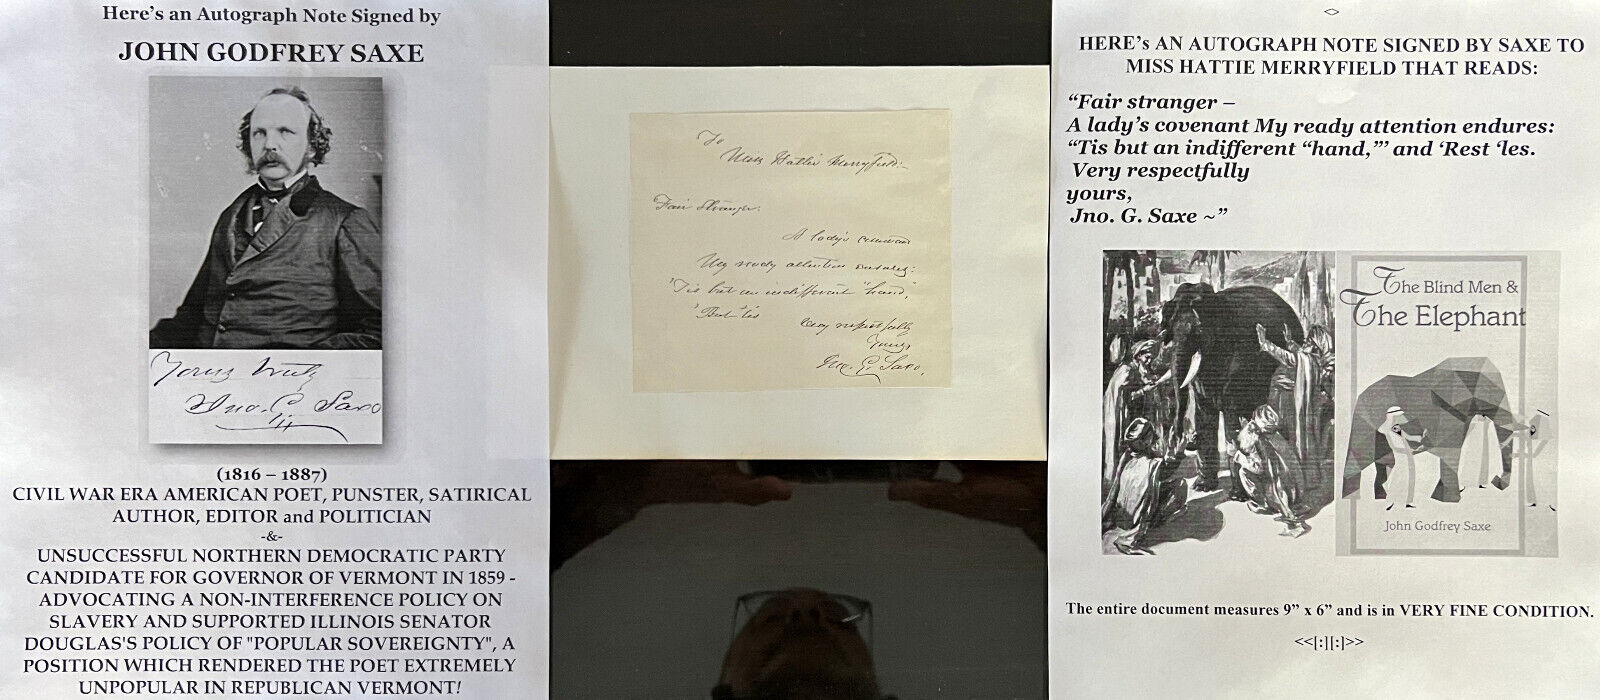 Here's an Autograph Note Signed by
JOHN GODFREY SAXE
Yours truly
Jno. G. Saxe
(1816 – 1887)
CIVIL WAR ERA AMERICAN POET, PUNSTER, SATIRICAL
AUTHOR, EDITOR and POLITICIAN
-&-
UNSUCCESSFUL NORTHERN DEMOCRATIC PARTY
CANDIDATE FOR GOVERNOR OF VERMONT IN 1859 -
ADVOCATING A NON-INTERFERENCE POLICY ON
SLAVERY AND SUPPORTED ILLINOIS SENATOR
DOUGLAS'S POLICY OF "POPULAR SOVEREIGNTY", A
POSITION WHICH RENDERED THE POET EXTREMELY
UNPOPULAR IN REPUBLICAN VERMONT!
To
Miss Hattie Merryfield:
Fair Stranger:
A lady's
My ready attention
'Tis but an indifferent "hand,"
very respectfully
Yours,
Jno. G. Saxe.
<>
HERE's AN AUTOGRAPH NOTE SIGNED BY SAXE TO
MISS HATTIE MERRYFIELD THAT READS:
“Fair stranger –
A lady’s covenant My ready attention endures:
“Tis but an indifferent “hand,”’ and ‘Rest ‘les.
Very respectfully
yours,
Jno. G. Saxe ~”
The Blind Men &
The Elephant
John Godfrey Saxe
The entire document measures 9” x 6” and is in VERY FINE CONDITION.
<<[:][:]>>